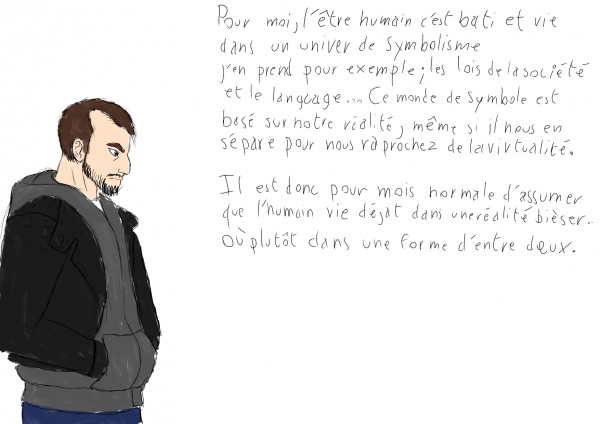 Pour moi, l'être humain c'est bati et vie
dans un univer de symbolisme
j'en prend pour exemple; les lois de la société
et le language... Ce monde de symbole est
basé sur notre réalité, même si il nous en
sépare pour nous raprochez de la virtualité.
Il est donc pour mois normale d'assumer
que l'humain vie déjat dans une réalité bièser..
Où plutôt dans une forme d'entre deux.